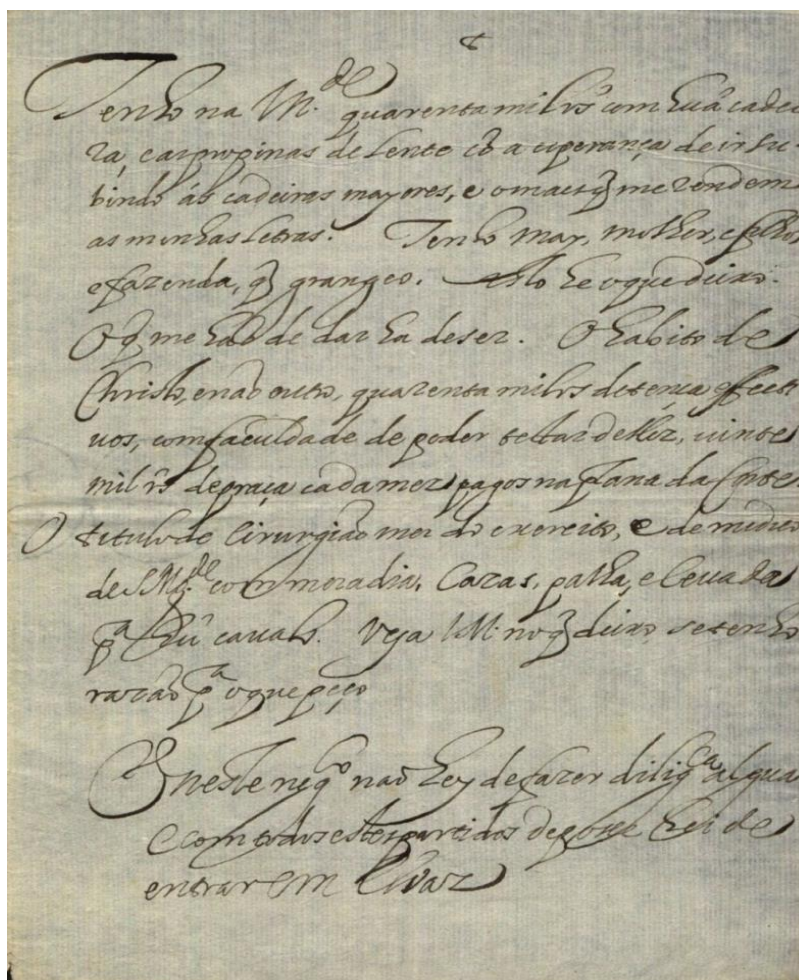 Tenho na M.de quarenta mil rs com huã cadei
ra, e as propinas de Lente cõ a esperança de ir su-
bindo ás cadeiras mayores, e o mais q̃ me rendem
as minhas letras. Tenho may, molher, e filhos,
e fazenda, q̃ grangeo. Isto he o que deixo.
O q̃ me haõ de dar ha de ser. O habito de
Christo, e naõ outro, quarenta mil rs de tença effecti
vos, com faculdade de poder testar delles, vinte
mil rs de praça cada mes pagos na plana da Corte
O titulo de Cirurgiaõ mor do exercito, e de medico
de S. Mg.de com moradia, Cazas, palha, e cevada
p.a hũ cavalo. Veja VM. no q̃ deixo, se tenho
razaõ p.a o que peço
E neste neg.o naõ hey de fazer dilig.ca algua
e com todos estes partidos de posse hei de
entrar em Elvas